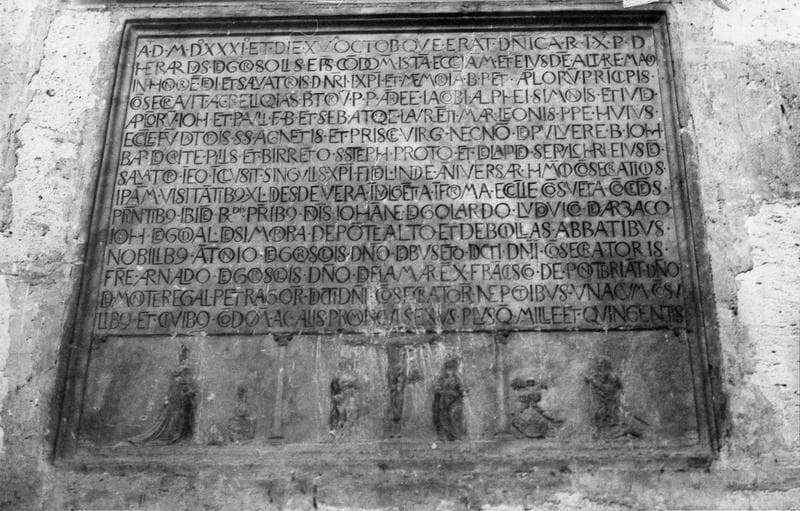 A·D·M·D·XXXI·ET·DIE·XV·OCTOB·QVE·ERAT·DNICA·R·IX·P·D
HERARDS·D·GROSOLLS·EPS·CODOMI·ISTA·ECCIAM·ET·EIVSDE·ALTRE·MAO
IN·HORE·DI·ET·SALVATOIS·DNRI·IXPI·ET·MEMOIA·B·PET·APLORV·PRICPIS·
COSECRAVIT·AC·RELIQIAS·BTORV·P·P·ADEE·IACOBI·ALPHEI·SIMOIS·ET·IVD
APLORV·IOH·ET·PAVLI·FAB·ET·SEBAT·QE·LAVRETI·MAR·LEONIS·PPE·HVIVS
ECLE·FVDTOIS·SS·AGNETIS·ET·PRISCE·VIRG·NECNO·D·PVLVERE·B·IOH
BAP·D·CITE·PLLIS·ET·BIRRETO·S·STEPH·PROTO·ET·D·LAPID·SEPVLCHRI·EIVSD·
SALVATO·IEO·ICLVSIT·SINGVLIS·XPI·FIDL·INDE·ANIVERSAR·HMO·COSECRATIOIS
IPAM·VISITATIB9·XL·DES·DE·VERA·IDLGETA·I·FROMA·ECLIE·COSVETA·COCEDS·
PRNTIB9·IBID·R·PRIB9·DIS·IOHANE·D·GOLARDO·LVDVICO·DARZACO
IOH·D·GODAL·D·SIMORA·DEPOTE·ALTO·ET·DE·BOLLAS·ABBATIBVS·
NOBILIB9·ATOIO·D·GROSOIS·DNO·D·BVSETO·DCTI·DNI·COSECRATORIS·
FRE·ARNALDO·D·GROSOIS·DNO·D·FLAMAREX·FRACSC·DE·POTBRIAT·DNO
D·MOTEREGAL·PETRAGOR·DCTI·DNI·COSECRATOR·NEPOTIBVS·VNACVM·COSV
LIB9·ET·CIVIB9·CODOM·AC·ALIIS·PROMISCVI·SEXVS·PLVSQ·MILLE·ET·QVINGENTIS